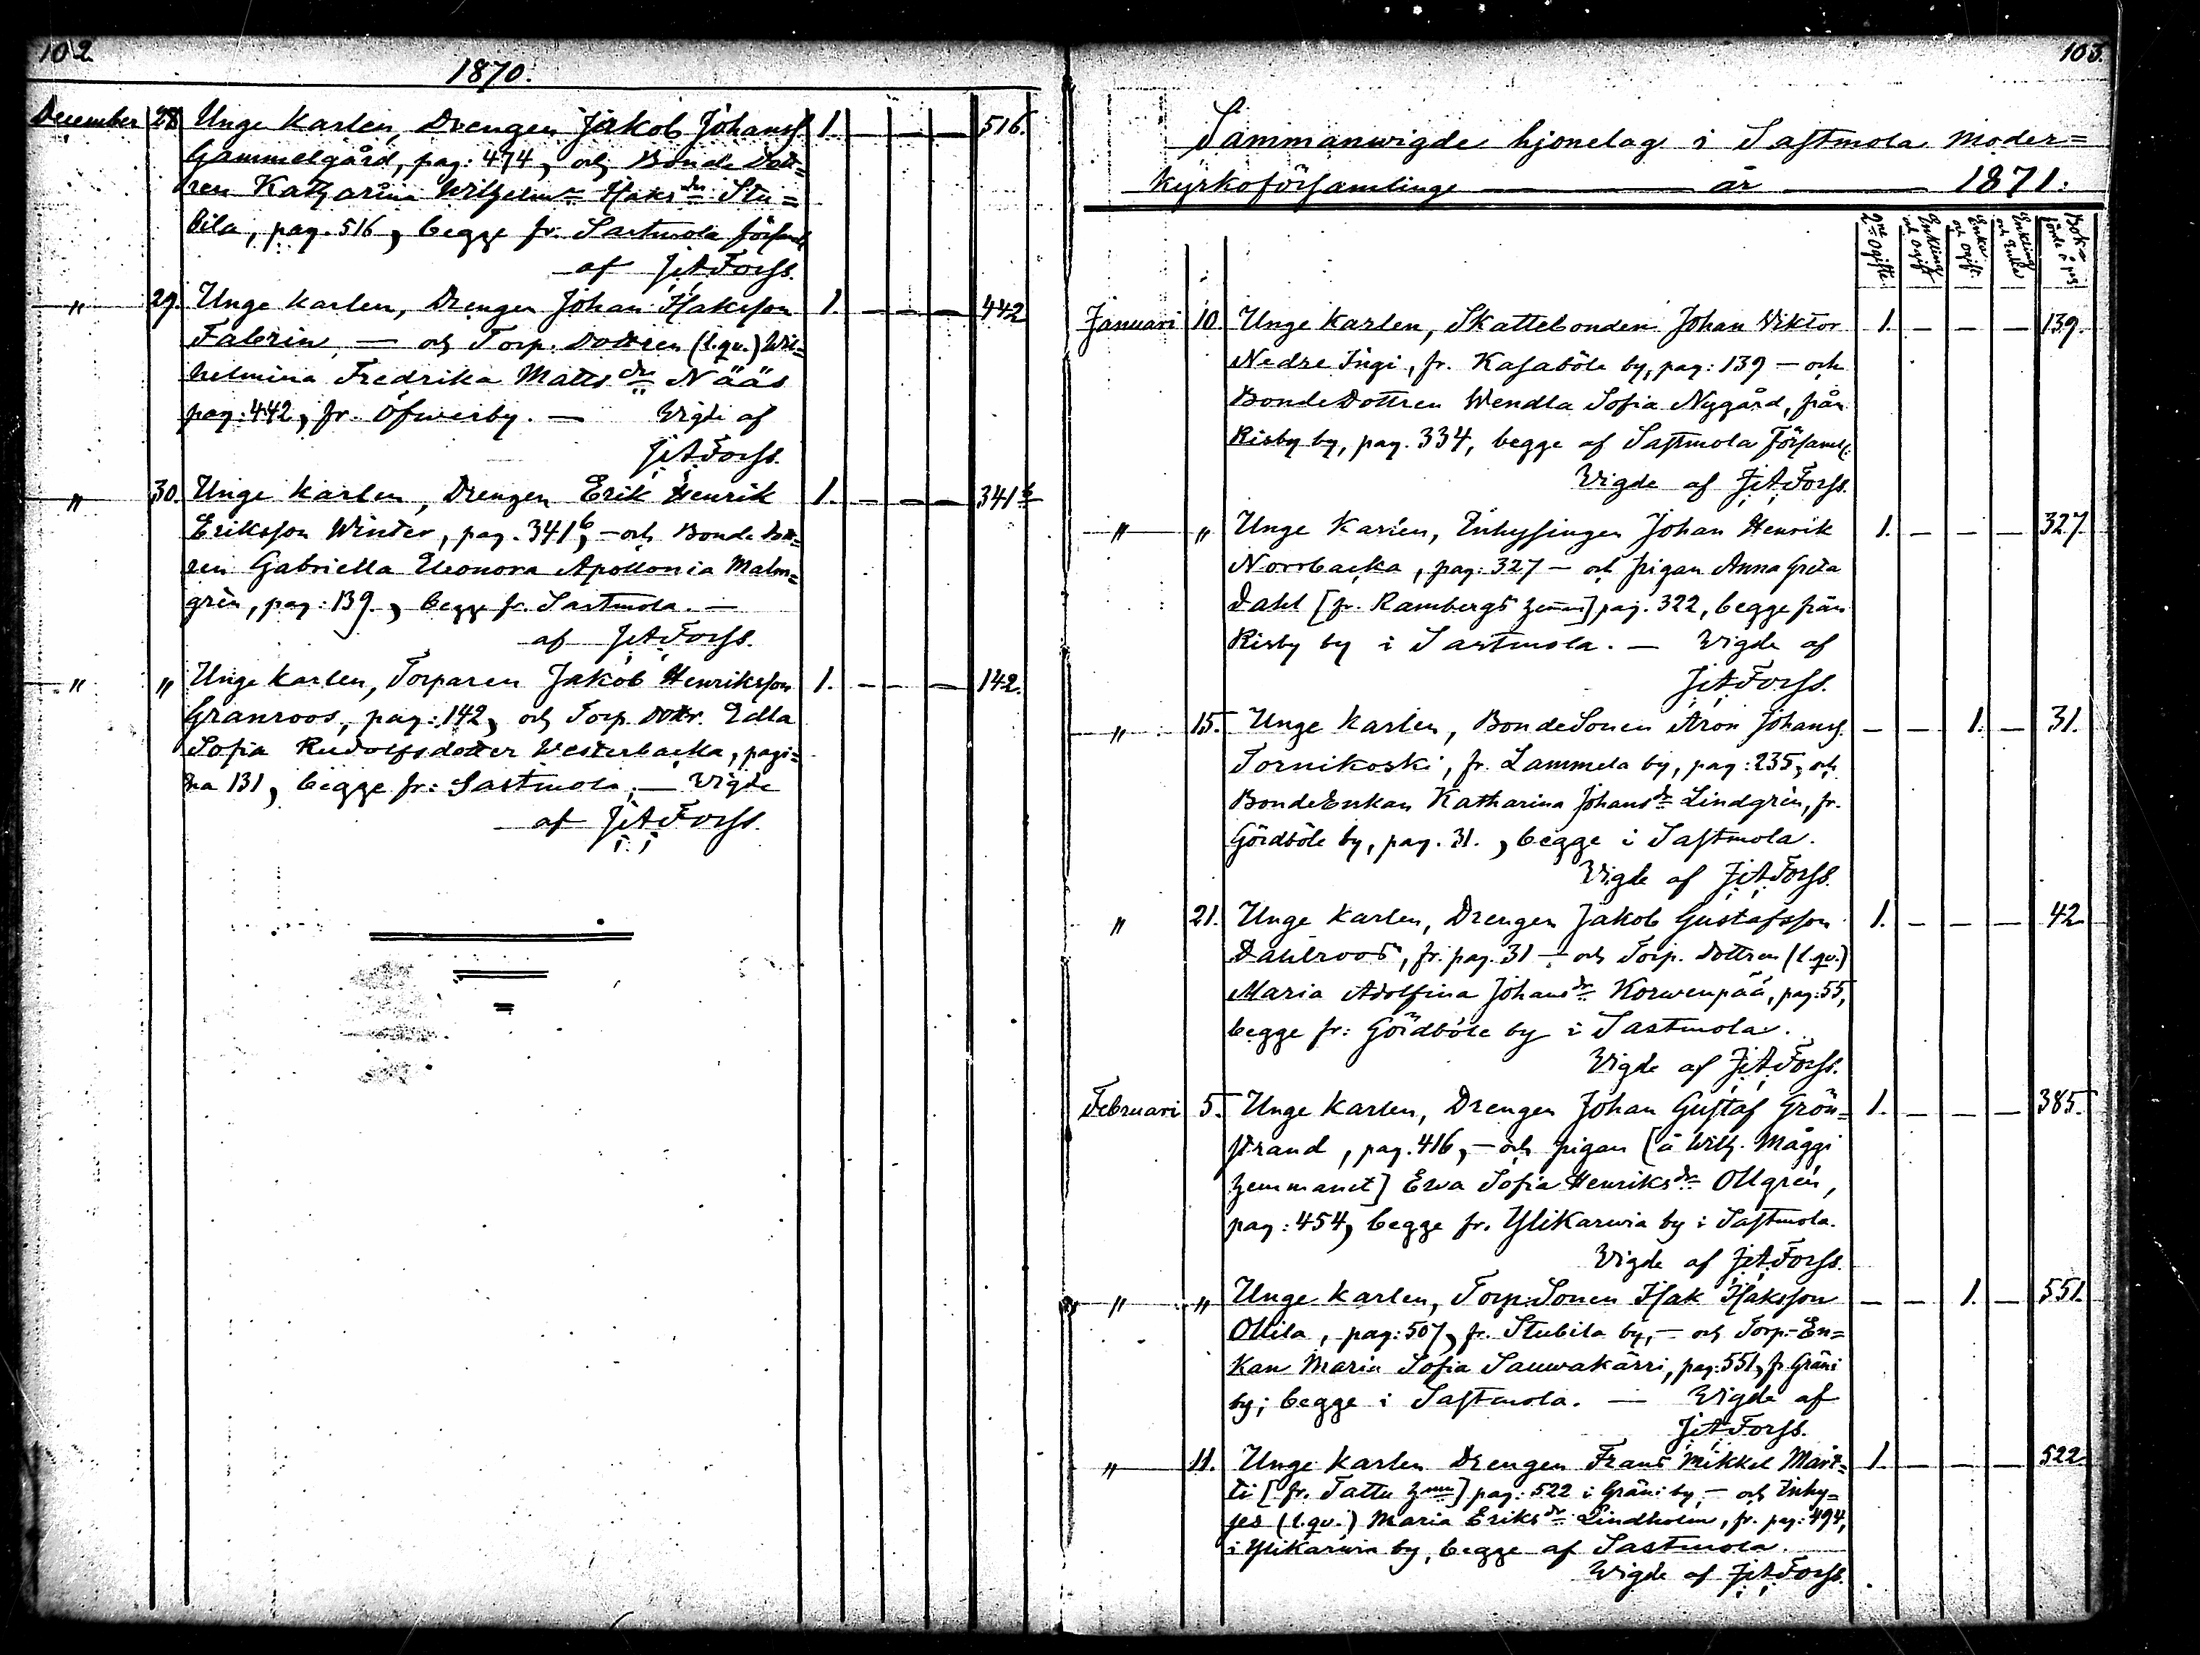 102.
1870.
December 28 Unge Karlen, Drengen Jakob Johanss. 1. — — — 516.
Gammelgård, pag: 474, och Bonde Dott=
ren Katharina Wilhelmina Isaksdr Stu=
bila, pag. 516, begge fr. Sastmola församl.
af J.A.Forss.
" 29. Unge Karlen, Drengen Johan Isaksson 1. — — — 442
Fabrin, — och Torp. Dottren (l.qv.) Wil=
helmina Fredrika Mattsdr Nääs
pag: 442, fr. Öfwerby. — Vigde af
J.A.Forss.
" 30. Unge Karlen, Drengen Erik Henrik 1. — — — 341 b
Eriksson Winter, pag. 341 b, — och Bonde Dott=
ren Gabriella Eleonora Apollonia Malm=
grèn, pag: 139., begge fr. Sastmola. —
af J.A.Forss.
" " Unge Karlen, Torparen Jakob Henriksson 1. — — — 142.
Granroos, pag: 142, och Torp. Dottr. Edla
Sofia Rudolfsdotter Westerbacka, pagi=
na 131, begge fr: Sastmola, — Vigde
af J.A.Forss.
103.
Sammanwigde hjonelag i Sastmola Moder=
kyrkoförsamlinge — år — 1871.
2ne Ogifte Enkling och Ogift Enka och Ogift Enkling och Enka
Januari 10 Unge Karlen, Skattebonden Johan Viktor 1. — — — 139.
Nedre Ingi, fr. Kasaböle by, pag: 139 — och
BondeDottren Wendla Sofia Nygård, från
Risby by, pag. 334, begge af Sastmola Församl:
Vigde af J.A.Forss.
" " Unge Karlen, Inhysingen Johan Henrik 1. — — — 327.
Norrbacka, pag: 327 — och pigan Anna Greta
Dahl [fr. Rambergs hemm] pag. 322, begge från
Risby by i Sastmola. — Vigde af
J.A.Forss.
" 15. Unge Karlen, BondeSonen Aron Johanss. — — 1. — 31.
Tornikoski, fr. Lammela by, pag: 235, och
BondeEnkan Katharina Johansdr Lindgrèn, fr.
Gördböle by, pag. 31., begge i Sastmola.
Vigde af J.A.Forss.
" 21. Unge Karlen, Drengen Jakob Gustafsson 1. — — — 42
Dahlroos, fr. pag. 31 — och Torp. Dottren (l.qv.)
Maria Adolfina Johansdr Korwenpää, pag: 55,
begge fr: Gördböle by i Sastmola.
Vigde af J.A.Forss.
Februari 5. Unge Karlen, Drengen Johan Gustaf Grön= 1. — — — 385.
strand, pag. 416, — och pigan [å Wilh. Måggi
hemmanet] Ewa Sofia Henriksdr Ollgrèn,
pag: 454, begge fr. Ylikarwia by i Sastmola.
Vigde af J.A.Forss.
" " Unge Karlen, Torp: Sonen Isak Isaksson — — 1. — 551.
Ollila, pag: 507, fr. Stubila by, — och Torp-En=
kan Maria Sofia Sauwakärri, pag: 551, fr Gräni
by; begge i Sastmola. — Vigde af
J.A.Forss.
" 11. Unge Karlen Drengen Frans Mikkel Mart= 1. — — — 522
ti [fr. Tattu hmn] pag: 522 i Gräni by, — och Inhy=
ses (l.qv.) Maria Eriksdr Lindholm, fr. pag: 494,
i Ylikarwia by, begge af Sastmola.
Wigde af J.A.Forss.